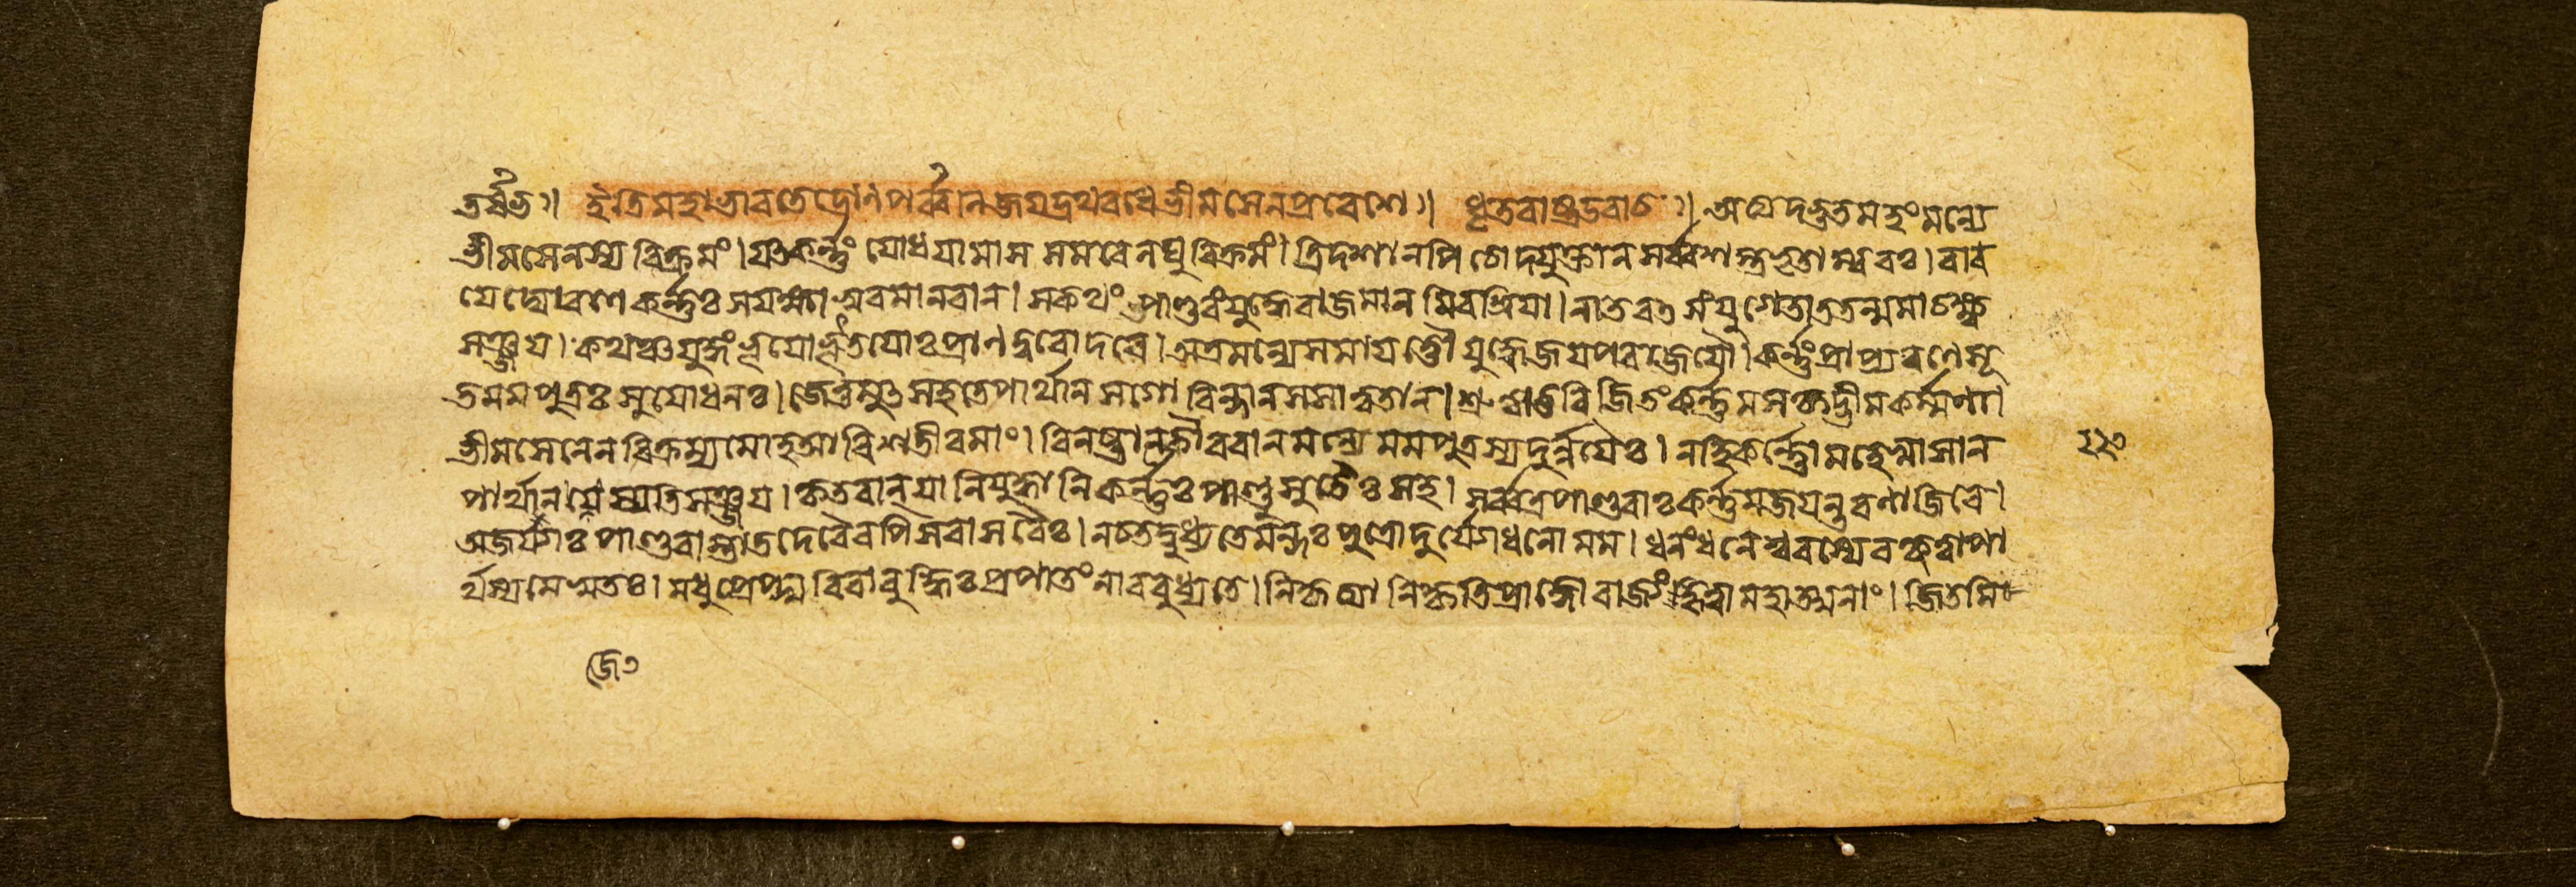 তর্ষভ ঃ॥ ইতি মহাভারতে দ্রোণপর্ব্বনি জয়দ্রথবধে ভীমসেনপ্রবেশঃ॥ ধৃতরাষ্ট্র উবাচঃ॥ অত্যেদদ্ভুতমহং মন্যে
ভীমসেনস্য বিক্রমং। যৎ কর্ন্নং যোধয়ামাস সমরে লঘুবিক্রমং। ত্রিদশানপি চোদযুক্তান সর্ব্বশস্ত্রভৃতাম্বরঃ। বার
যেদ্যো রণে কর্ন্নঃ সযক্ষাসুরমানবান। স কথং পাণ্ডবং যুদ্ধে রাজমানমিব শ্রিয়া। নাতরত সংযুগে তাত তন্মমাচক্ষ্ব
সঞ্জয়। কথঞ্চ যুদ্ধং ভূয়োভূত্তয়োঃ প্রাণদুরোদরে। অত্র মন্যে সমায়ত্তৌ যুদ্ধে জয়পরাজয়ৌ। কর্ন্নং প্রাপ্য রণে সূ
ত মম পুত্রঃ সুযোধনঃ। জেতুমুৎসহতে পার্থান সগোবিন্দান সসাত্বতান। শ্রুত্বা তু বিজিতং কর্ন্নমসকৃদ্ভীমকর্ম্মণা
ভীমসেনেন বিক্রম্য মোহ আবিশতীব মাং। বিনষ্টান কৌরবান মন্যে মম পুত্রস্য দুর্ন্নয়ৈঃ। নহি কর্ন্নো মহেষ্বাসান
পার্থান জেষ্যতি সঞ্জয়। কৃতবান যানি যুদ্ধানি কর্ন্নঃ পাণ্ডুসুতৈঃ সহ। সর্ব্বত্র পাণ্ডবাঃ কর্ন্নমজয়ন্ত রণাজিরে।
অজয়্যাঃ পাণ্ডবাস্তাত দেবৈরপি সবাসবৈঃ। ন চ তদ্বুধ্যতে মন্দঃ পুত্রো দুর্যোধনো মম। ধনং ধনেশ্বরস্যেব হৃত্বা পা
র্থস্য মে সুতঃ। মধুপ্রেপ্সুরিবাবুদ্ধিঃ প্রপাতং নাববুধ্যতে। নিকৃত্যা নিকৃতিপ্রাজ্ঞো রাজ্যং হৃত্বা মহাত্মনাং। জিতমি